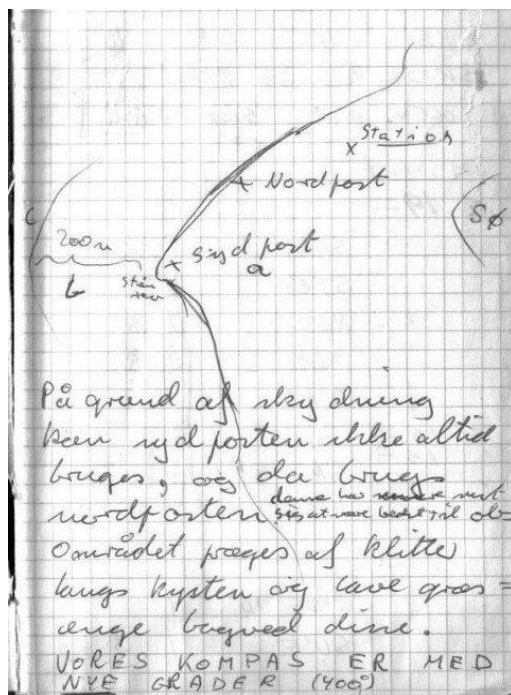 Station
Nordpost
SØ
200 m
Sydpost
a
Sten
rev
På grund af skydning
kan sydposten ikke altid
bruges, og da brugs
nordposten. denne har senere vist
sig at være bedst til obs
Området præges af klitter
langs kysten og lave græs=
enge bagved disse.
VORES KOMPAS ER MED
NYE GRADER (400°)